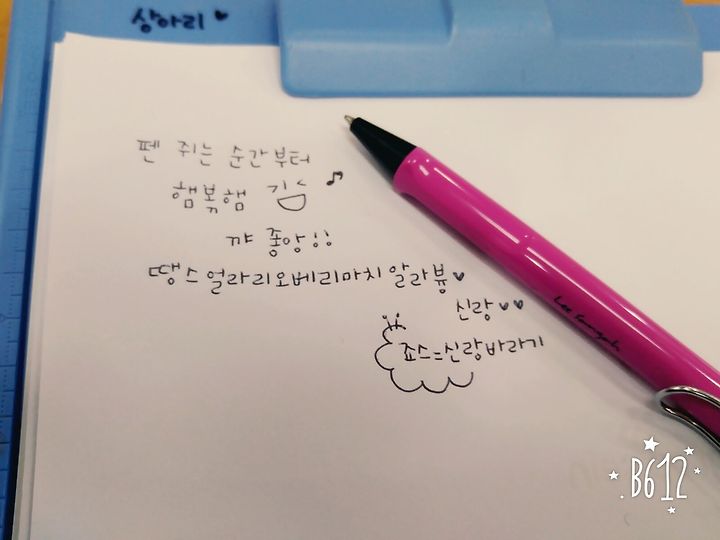 상아리♥
펜 쥐는 순간부터
햄볶햄 김 ♪
꺄 좋앙!!
땡스얼라리오베리마치알라뷰♥
신랑♥♥
죠스=신랑바라기
B612